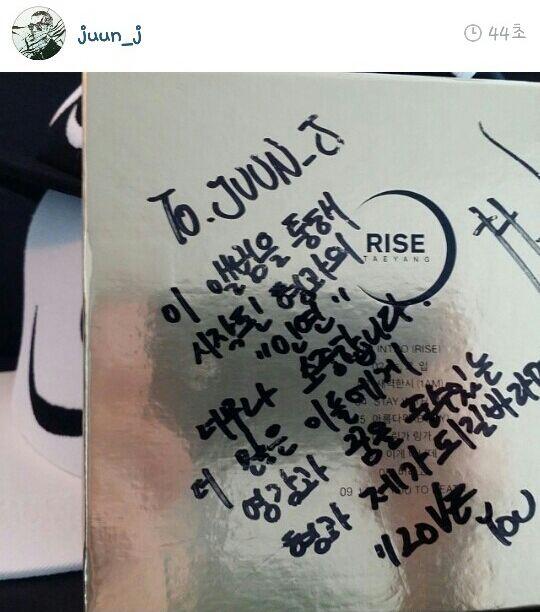 juun_j
44초
TO. JUUN_J
이 앨범을 통해
시작된 형과의
"인연"
너무나 소중합니다.
더 많은 이들에게
영감과 꿈을 줄수있는
형과 제가 되길 바라며
"LOVE YOU
RISE
TAEYANG
INTRO (RISE)
입
새벽한시 (1AM)
STAY
아름다워
링가 링가
이게
09